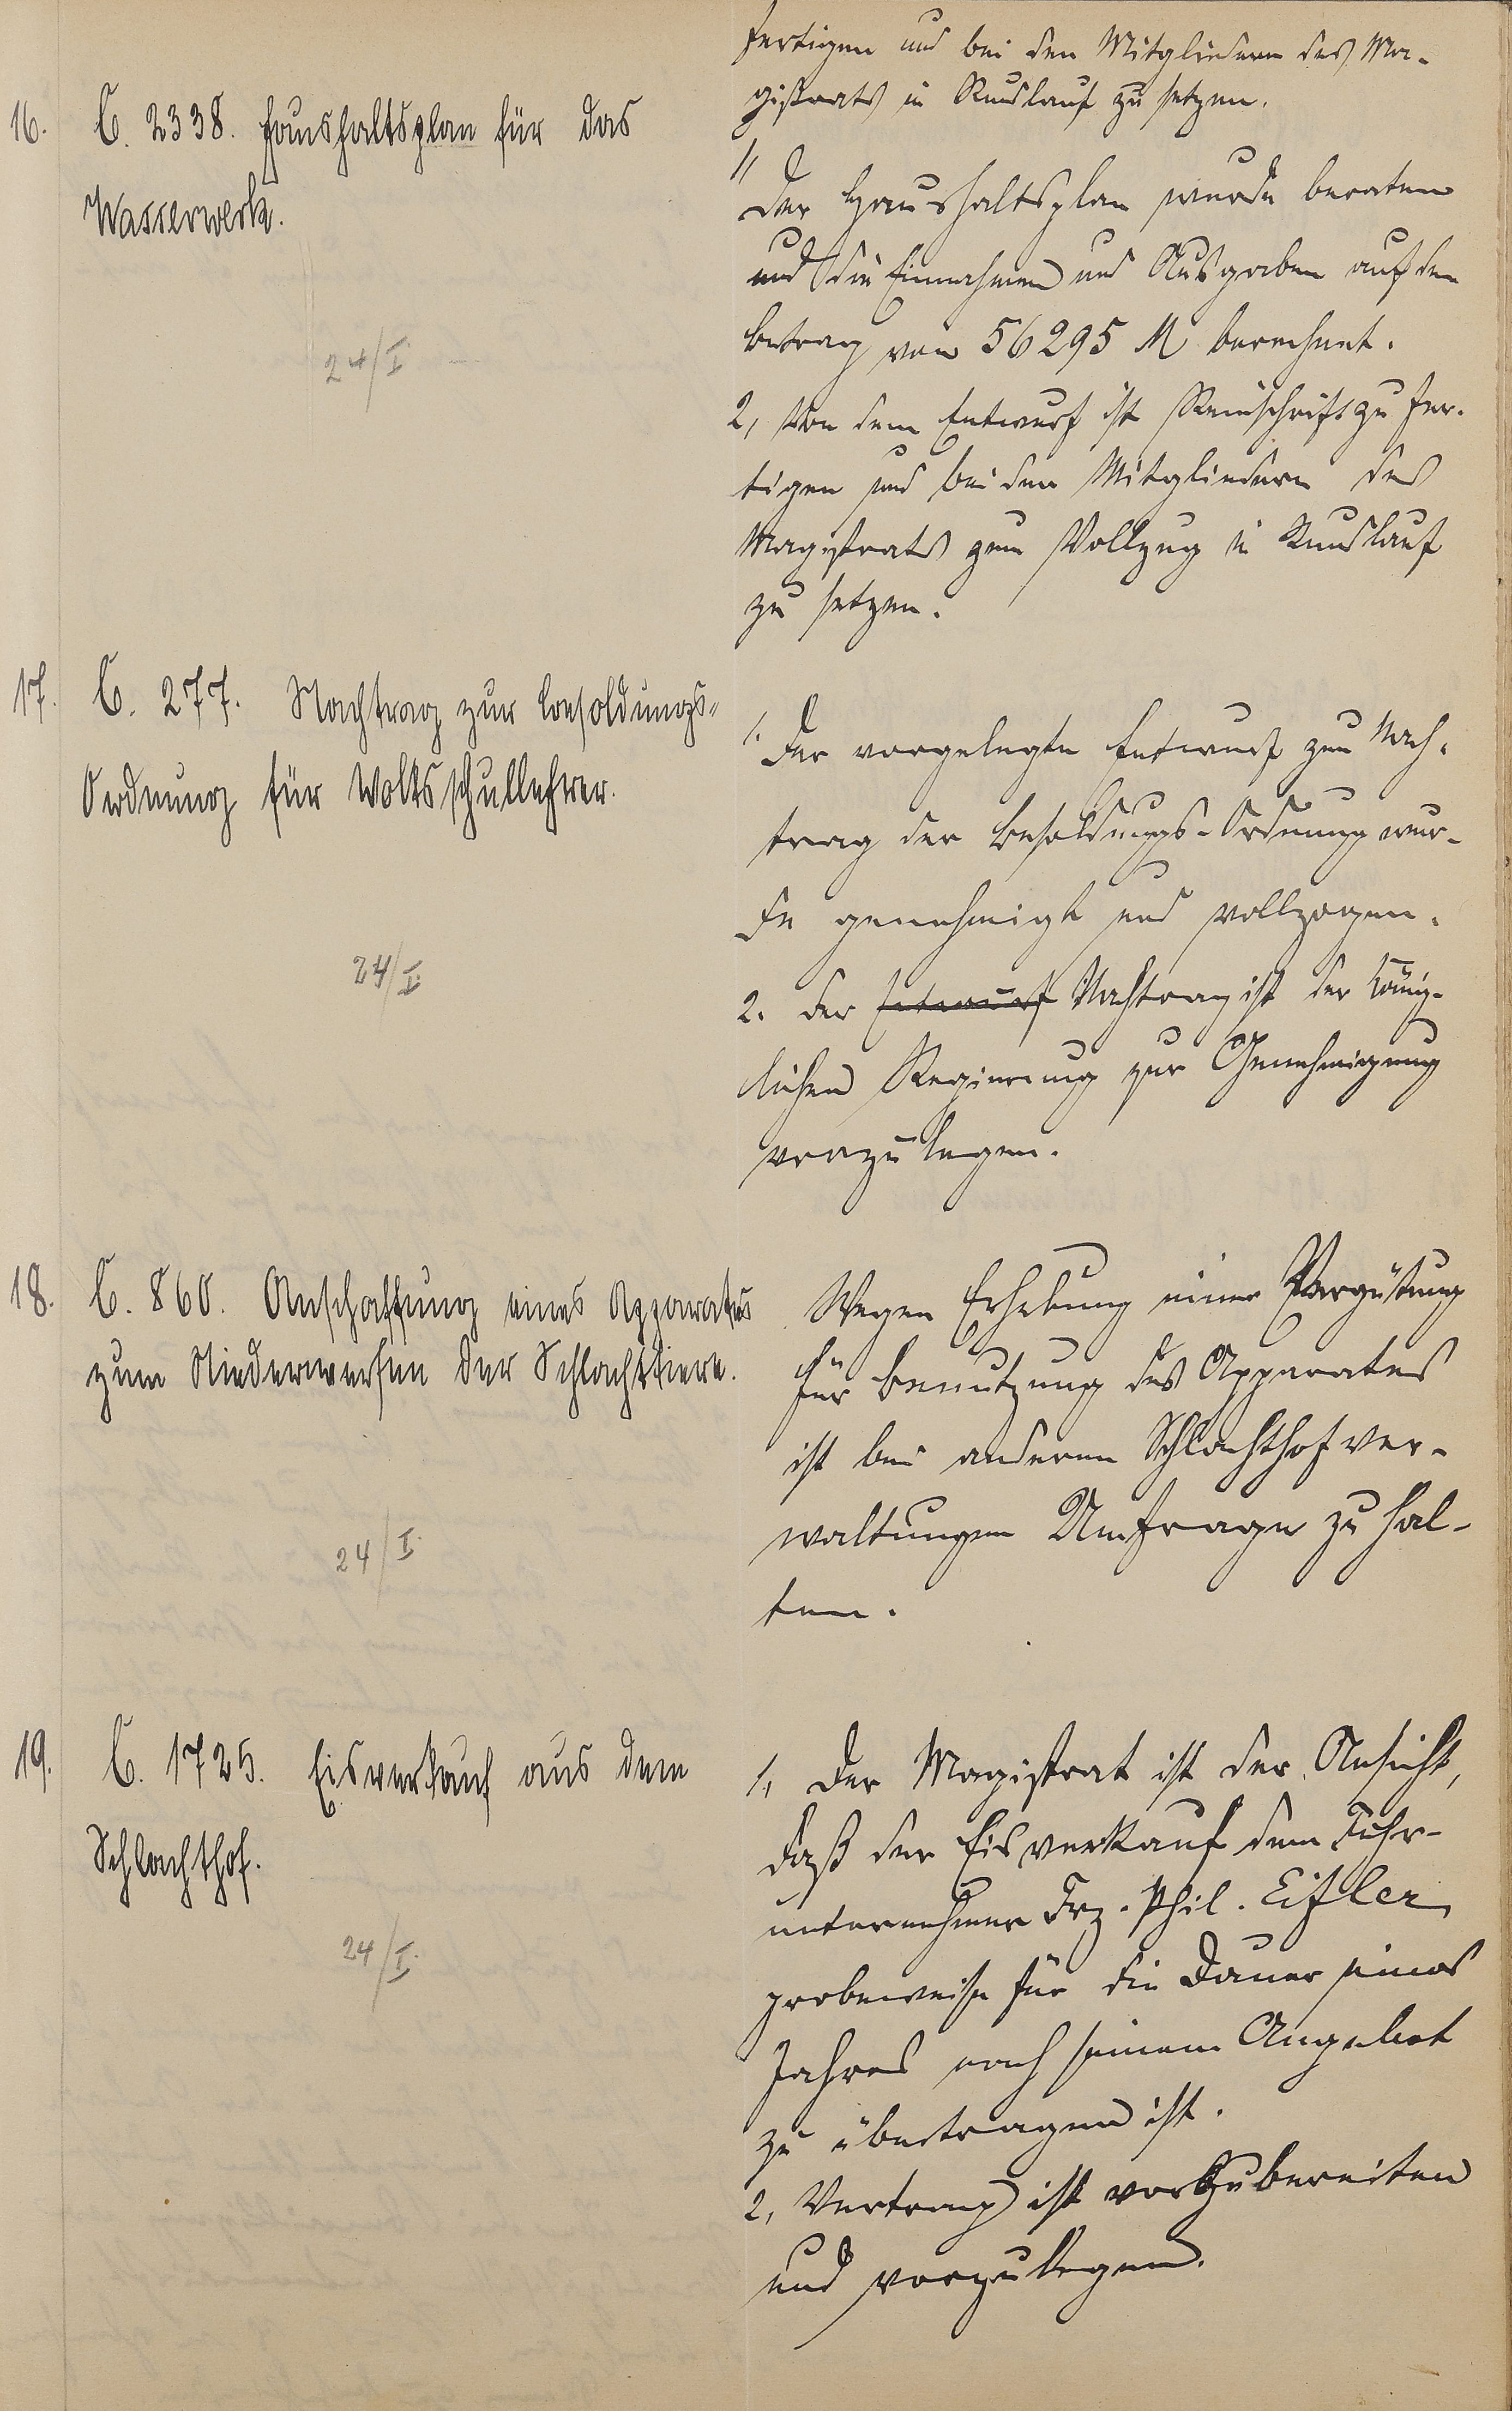 fertigen und bei den Mitgliedern des Ma-
gistrats in Rundlauf zu setzen.
16. C. 2338. Haushaltsplan für das
Wasserwerk.
24/I
1, Der Haushaltsplan wurde beraten
und die Einnahmen und Ausgaben auf den
Betrag von 56295 M berechnet.
2, Von dem Entwurf ist Reinschrift zu fer-
tigen und bei den Mitgliedern des
Magistrats zum Vollzug in Rundlauf
zu setzen.
17. C. 277. Nachtrag zur Besoldungs-
Ordnung für Volksschullehrer.
24/I.
1. Der vorgelegte Entwurf zum Nach-
trag der Besoldungs-Ordnung wur-
de genehmigt und vollzogen.
2. Der Entwurf Nachtrag ist der König-
lichen Regierung zur Genehmigung
vorzulegen.
18. C. 860. Anschaffung eines Apparates
zum Niederwerfen der Schlachttiere.
24/I.
Wegen Erhebung einer Vergütung
für Benutzung des Apparates
ist bei anderen Schlachthofver-
waltungen Umfrage zu hal-
ten.
19. C. 1725. Eisverkauf aus dem
Schlachthof.
24/I.
1, Der Magistrat ist der Ansicht,
daß der Eisverkauf dem Fuhr-
unternehmer Frz. Phil. Eifler
probeweise für die Dauer eines
Jahres nach seinem Angebot
zu übertragen ist.
2, Vertrag ist vorzubereiten
und vorzulegen.